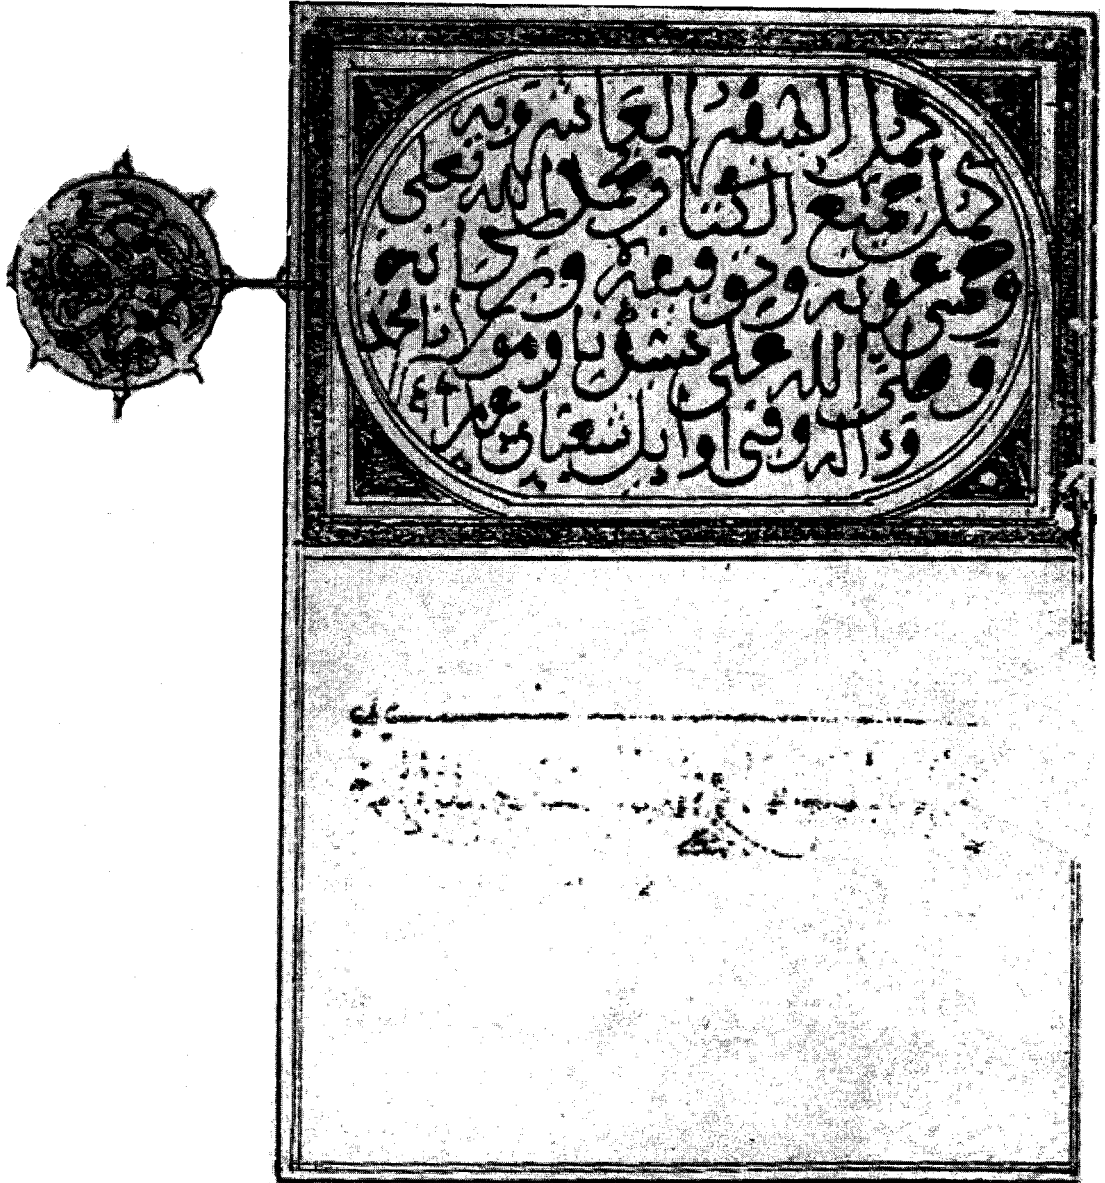 كمل السفر العاشر وبه
كمل جميع الكتاب والحمد لله تعلى
وحسن عونه وتوفيقه
وصلى الله على سيدنا ومولانا محمد
وءاله وفي أوايل شعبان عام